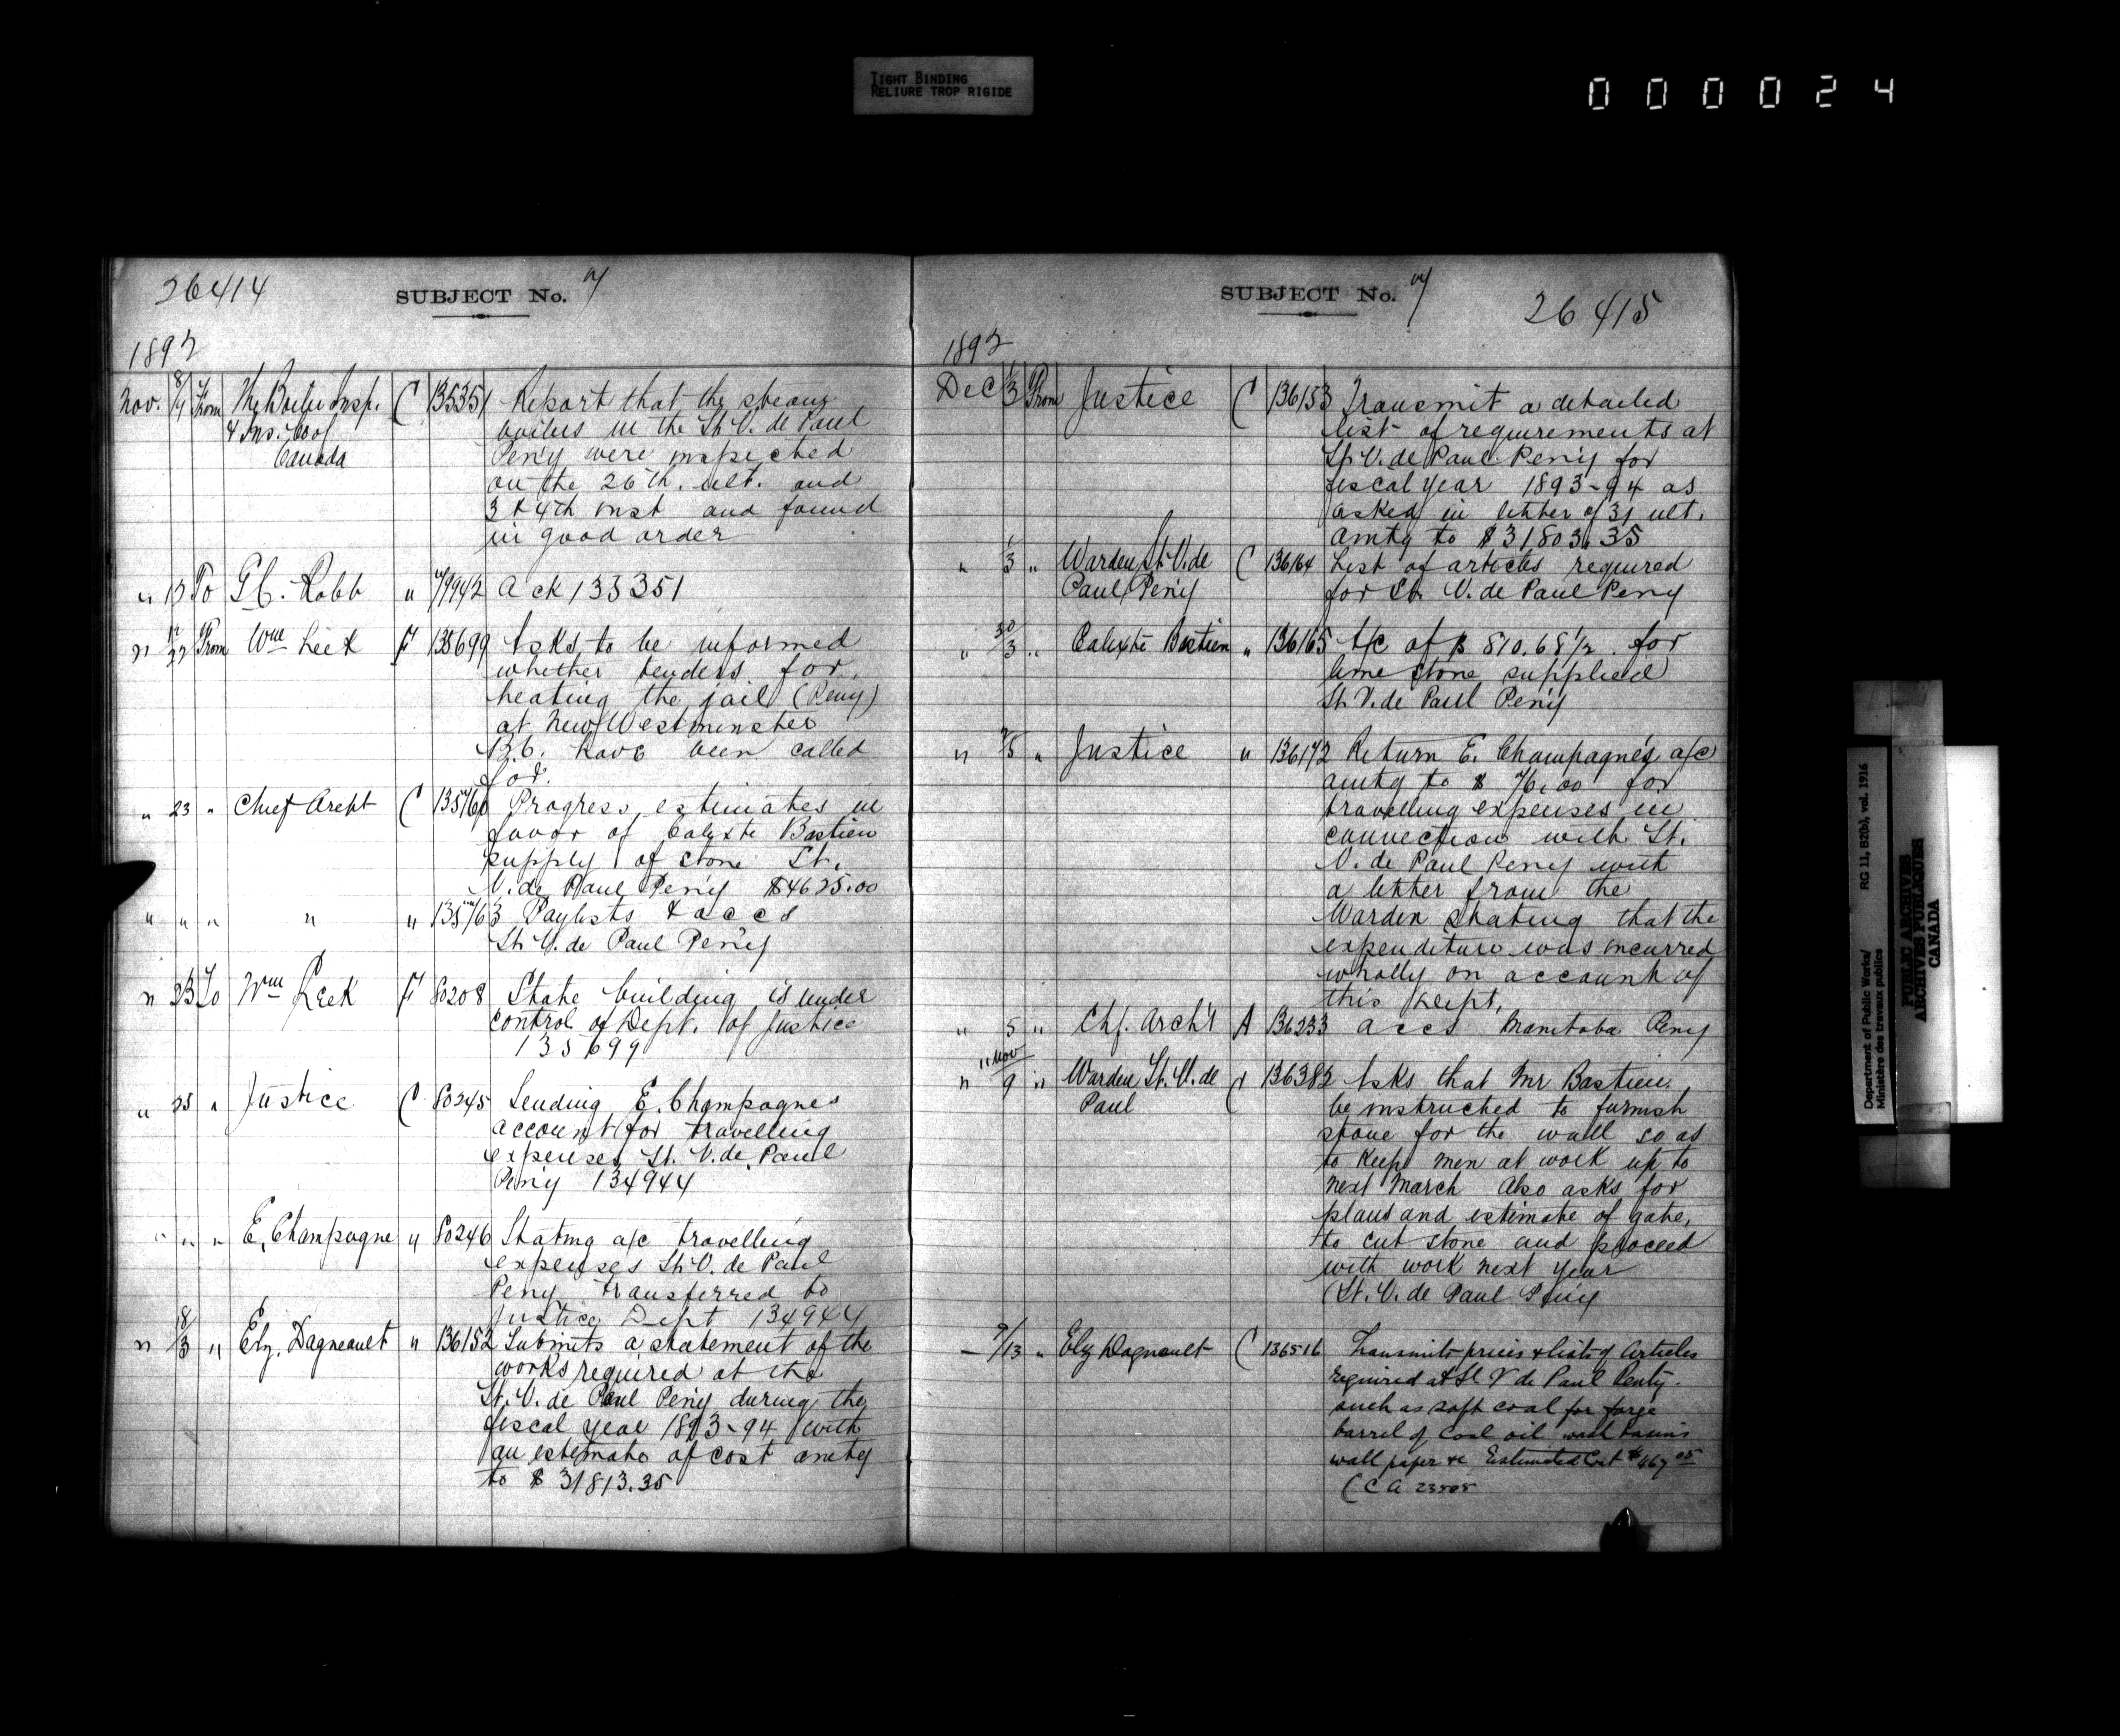 TIGHT BINDING
RELIURE TROP RIGIDE
000024
26414
SUBJECT No. 7
1892
Nov. 8/9 From The Boiler Insp. C 135351 Report that the steam
& Ins. Co of boilers in the St. V. de Paul
Canada Peny were inspected
on the 26th. ult. and
3 & 4th inst and found
in good order
" To G.C. Robb " 79942 Ack 135351
" 22 From Wm Leek F 135699 Asks to be informed
whether tenders for
heating the jail (Peny)
at New Westminster
B.C. have been called
for.
" 23 " Chief Archt C 135760 Progress estimates in
favor of Calixte Bastien
supply of stone St.
V. de Paul Peny $4625.00
" " " " " 135763 Paylists & accs
St. V. de Paul Peny
" 23 To Wm Leek F 80208 State building is under
control of Dept. of Justice
135699
" 25 " Justice C 80245 Sending E. Champagnes
account for travelling
expenses St. V. de Paul
Peny 134944
" " " E. Champagne " 80246 Stating a/c travelling
expenses St. V. de Paul
Peny transferred to
Justice Dept 134944
" 18/3 " Elz. Dagneault " 136152 Submits a statement of the
works required at the
St. V. de Paul Peny during the
fiscal year 1893-94 with
an estimate of cost amtg
to $31813.35
SUBJECT No. 7
26415
1892
Dec 1/3 From Justice C 136153 Transmit a detailed
list of requirements at
St. V. de Paul Peny for
fiscal year 1893-94 as
asked in letter of 31 ult.
amtg to $31803.35
" 1/3 " Warden St. V. de C 136164 List of articles required
Paul Peny for St. V. de Paul Peny
" 30/3 " Calixte Bastien " 136165 A/c of $810.68 1/2 for
lime stone supplied
St. V. de Paul Peny
" 2/5 " Justice " 136172 Return E. Champagne's a/c
amtg to $76.00 for
travelling expenses in
connection with St.
V. de Paul Peny with
a letter from the
Warden stating that the
expenditure was incurred
wholly on account of
this Dept.
" 5 " Chf. Arch't A 136233 accs Manitoba Peny
" Nov 9 " Warden St. V. de C 136382 Asks that Mr Bastien
Paul be instructed to furnish
stone for the wall so as
to keep men at work up to
next March Also asks for
plans and estimate of gate,
to cut stone and proceed
with work next year
(St. V. de Paul Peny
— 9/13 " Elz Dagneault C 136516 Transmits prices & lists of Articles
required at St V de Paul Penty.
such as soft coal for forge
barrel of coal oil wash basins
wall paper &c Estimated Cost $467 05
(C A
Department of Public Works/
Ministère des travaux publics
RG 11, B2(b), vol. 1916
PUBLIC ARCHIVES
ARCHIVES PUBLIQUES
CANADA